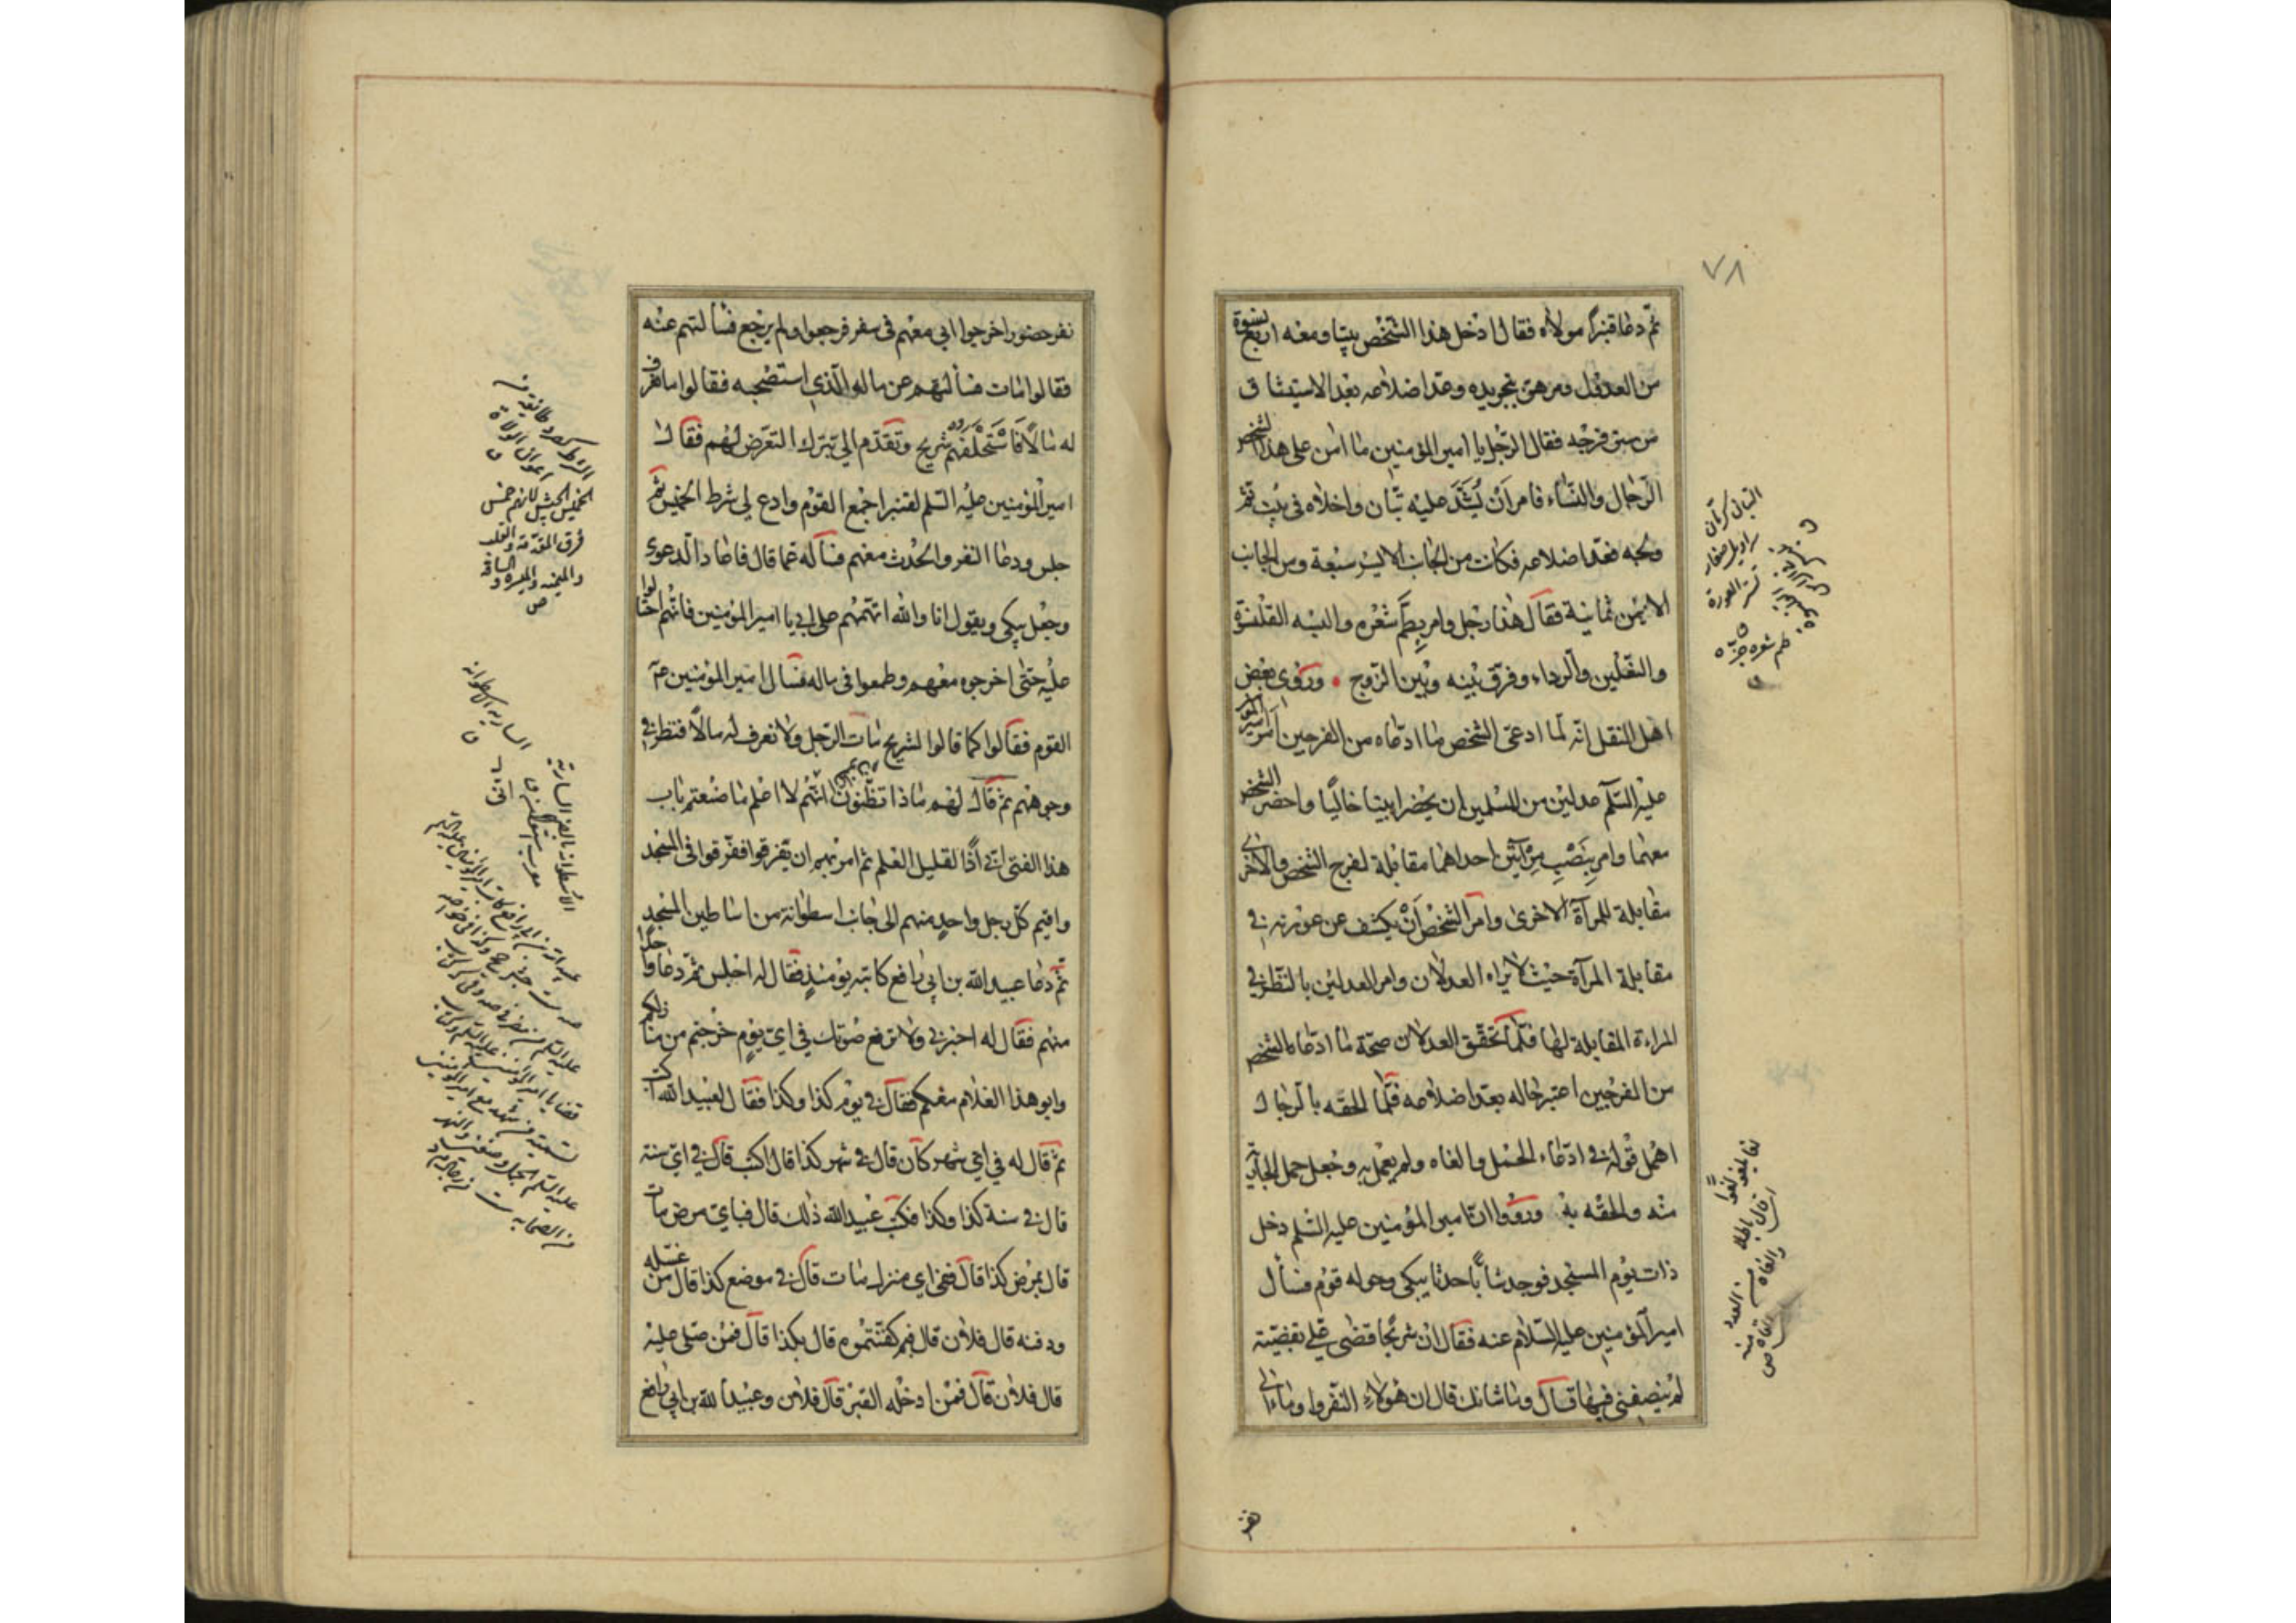 ٧٨
ثم دعا قنبرًا مولاه فقال ادخل هذا الشخص بيتا ومعه اربع نسوة
من العدول ومرهن بتجريده وعد اضلاعه بعد الاستيثاق
من ستر فرجه فقال الرجل يا امير المؤمنين ما امن على هذا الشخص
الرجال والنساء فامر اَنْ يُشَدَّ عليه تبّان واخلاه في بيت ثم
ولجه فعد اضلاعه فكانت من الجانب الايسر سبعة ومن الجانب
الايمن ثمانية فقال هذا رجل وامر بِطَمِّ شعره والبسه القلنسوة
والنعلين والرداء وفرّق بينه وبين الزوج وروى بعض
اهل النقل انّه لما ادعى الشخص ما ادعاه من الفرجين اَمَر امير المؤ
عليه السّلم عدلين من المسلمين ان يحضرا بيتا خاليًا واحضر الشخص
معهما وامر بِنَصْبِ مِرْآتَيْن احداهما مقابلة لفرج الشخص والاخرى
مقابلة للمرآة الاخرى وامر الشخص اَنْ يكشف عن عورته في
مقابلة المرآة حيث لا يراه العدلان وامر العدلين بالنظر في
المراءة المقابلة لها فلما تحقق العدلان صحّة ما ادعاه الشخص
من الفرجين اعتبر حاله بعد اضلاعه فلما الحقه بالرجال
اهمل قوله في ادعاء الحمل والغاه ولم يعمل به وجعل حمل الجارية
منه والحقه به ورووا ان امير المؤمنين عليه السّلم دخل
ذات يوم المسجد فوجد شابًّا حدثا يبكي وحوله قوم فسأل
امير المؤمنين عليه السّلام عنه فقال ان شريحًا قضى عَلَيّ بقضيّة
لم ينصفني فيها قال وما شانك قال ان هؤلاء النفر واوماء الى
التبان كرمان
سراويل صغار
تستر العورة
طم شعره جزّه
لغا يلغو لغوًا
اي قال باطلا
والغاه من العدد
القاه منه
ص
نفر حضور اخرجوا ابي معهم في سفر فرجعوا ولم يرجع فسألتهم عنه
فقالوا مات فسألتهم عن ماله الّذي استصحبه فقالوا ما نعرف
له مالًا فَاسْتَحْلَفَهم شريح وتقدّم الي بترك التعرّض لهم فقال
امير المؤمنين عليه السّلم لقنبر اجمع القوم وادع لي شرط الخميس ثم
جلس ودعا النفر والحدث معهم فسأله عما قال فاعاد الدعوى
وجعل يبكي ويقول انا والله اتهمهم على ابي يا امير المؤمنين فانهم احتالوا
عليه حتى اخرجوه معهم وطمعوا في ماله فسال امير المؤمنين عم
القوم فقالوا كما قالوا لشريح مات الرجل ولا نعرف له مالًا فنظر في
وجوههم ثم قال لهم ماذا تظنون اَنّي لا اعلم ما صنعتم باب
هذا الفتى اني اذًا لقليل العلم ثم امر بهم ان يفرقوا ففرقوا في المسجد
واقيم كل رجل واحد منهم الى جانب اسطوانة من اساطين المسجد
ثم دعا عبيد الله بن ابي رافع كاتبه يومئذٍ فقال له اجلس ثم دعا واحدًا
منهم فقال له اخبرني ولا ترفع صوتك في اي يوم خرجتم من منازلكم
وابو هذا الغلام معكم فقال في يوم كذا وكذا فقال لعبيد الله اكتب
ثم قال له في اي شهر كان قال في شهر كذا قال اكتب قال في اي سنة
قال في سنة كذا وكذا فكتب عبيد الله ذلك قال فباي مرض مات
قال بمرض كذا قال ففي اي منزل مات قال في موضع كذا قال من غسله
ودفنه قال فلان قال فبم كفنتموه قال بكذا قال فمن صلى عليه
قال فلان قال فمن ادخله القبر قال فلان وعبيد الله بن ابي رافع
الخميس الجيش لانهم خمس
فرق المقدمة والقلب
والميمنة والميسرة والساقة
ص
السارية الاسطوانة
ق